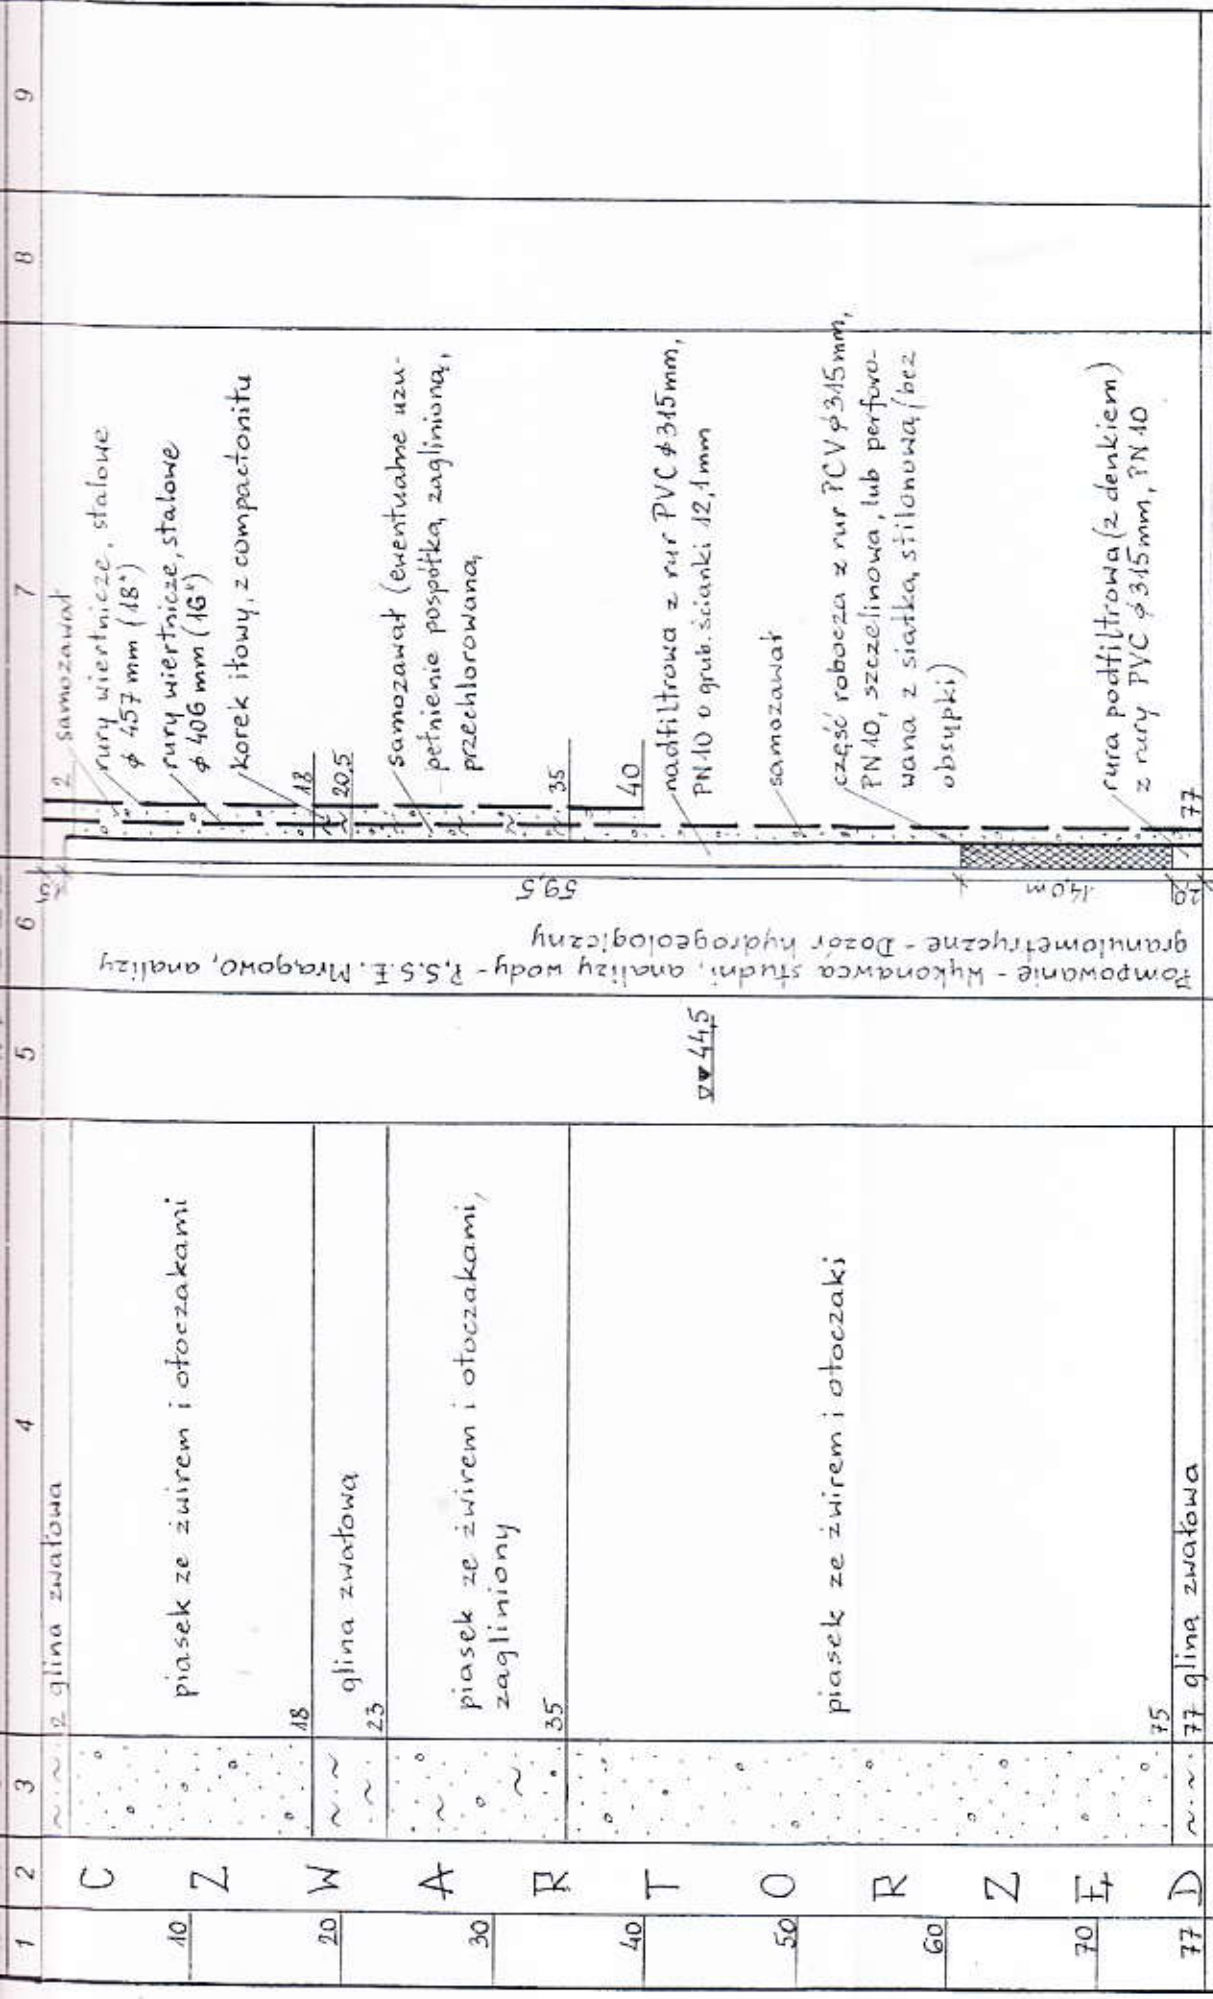 1 2 3 4 5 6 7 8 9
10
20
30
40
50
60
70
77
C Z W A R T O R Z Ę D
2 glina zwałowa
piasek ze żwirem i otoczakami
18
glina zwałowa
23
piasek ze żwirem i otoczakami,
zagliniony
35
piasek ze żwirem i otoczaki
75
77 glina zwałowa
44,5
Pompowanie - Wykonawca studni, analizy wody - P.S.S.E. Mrągowo, analizy
granulometryczne - Dozór hydrogeologiczny
59,5
14,0m
2,0
2
samozawał
rury wiertnicze, stalowe
ϕ 457 mm (18")
rury wiertnicze, stalowe
ϕ 406 mm (16")
korek iłowy, z compactonitu
18
20,5
samozawał (ewentualne uzu-
pełnienie pospółką zaglinioną,
przechlorowaną
35
40
nadfiltrowa z rur PVC ϕ 315mm,
PN10 o grub. ścianki 12,1mm
samozawał
część robocza z rur PCV ϕ 315mm,
PN10, szczelinowa, lub perforo-
wana z siatką stilonową (bez
obsypki)
rura podfiltrowa (z denkiem)
z rury PVC ϕ 315mm, PN10
77